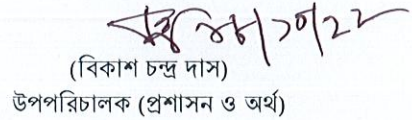 (বিকাশ চন্দ্র দাস)
উপপরিচালক (প্রশাসন ও অর্থ)